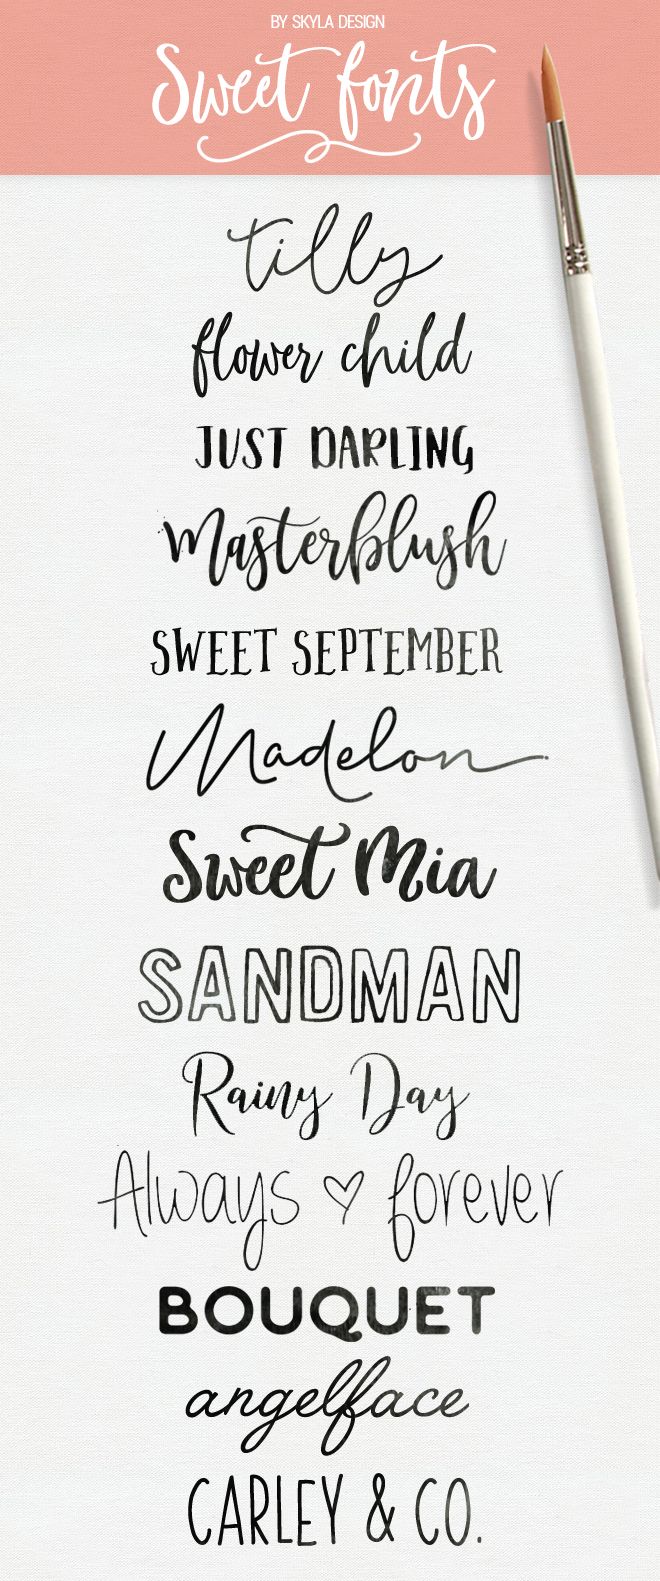 BY SKYLA DESIGN
Sweet fonts
tilly
flower child
JUST DARLING
Masterblush
SWEET SEPTEMBER
Madelon
Sweet Mia
SANDMAN
Rainy Day
Always ♡ forever
BOUQUET
angelface
CARLEY & CO.